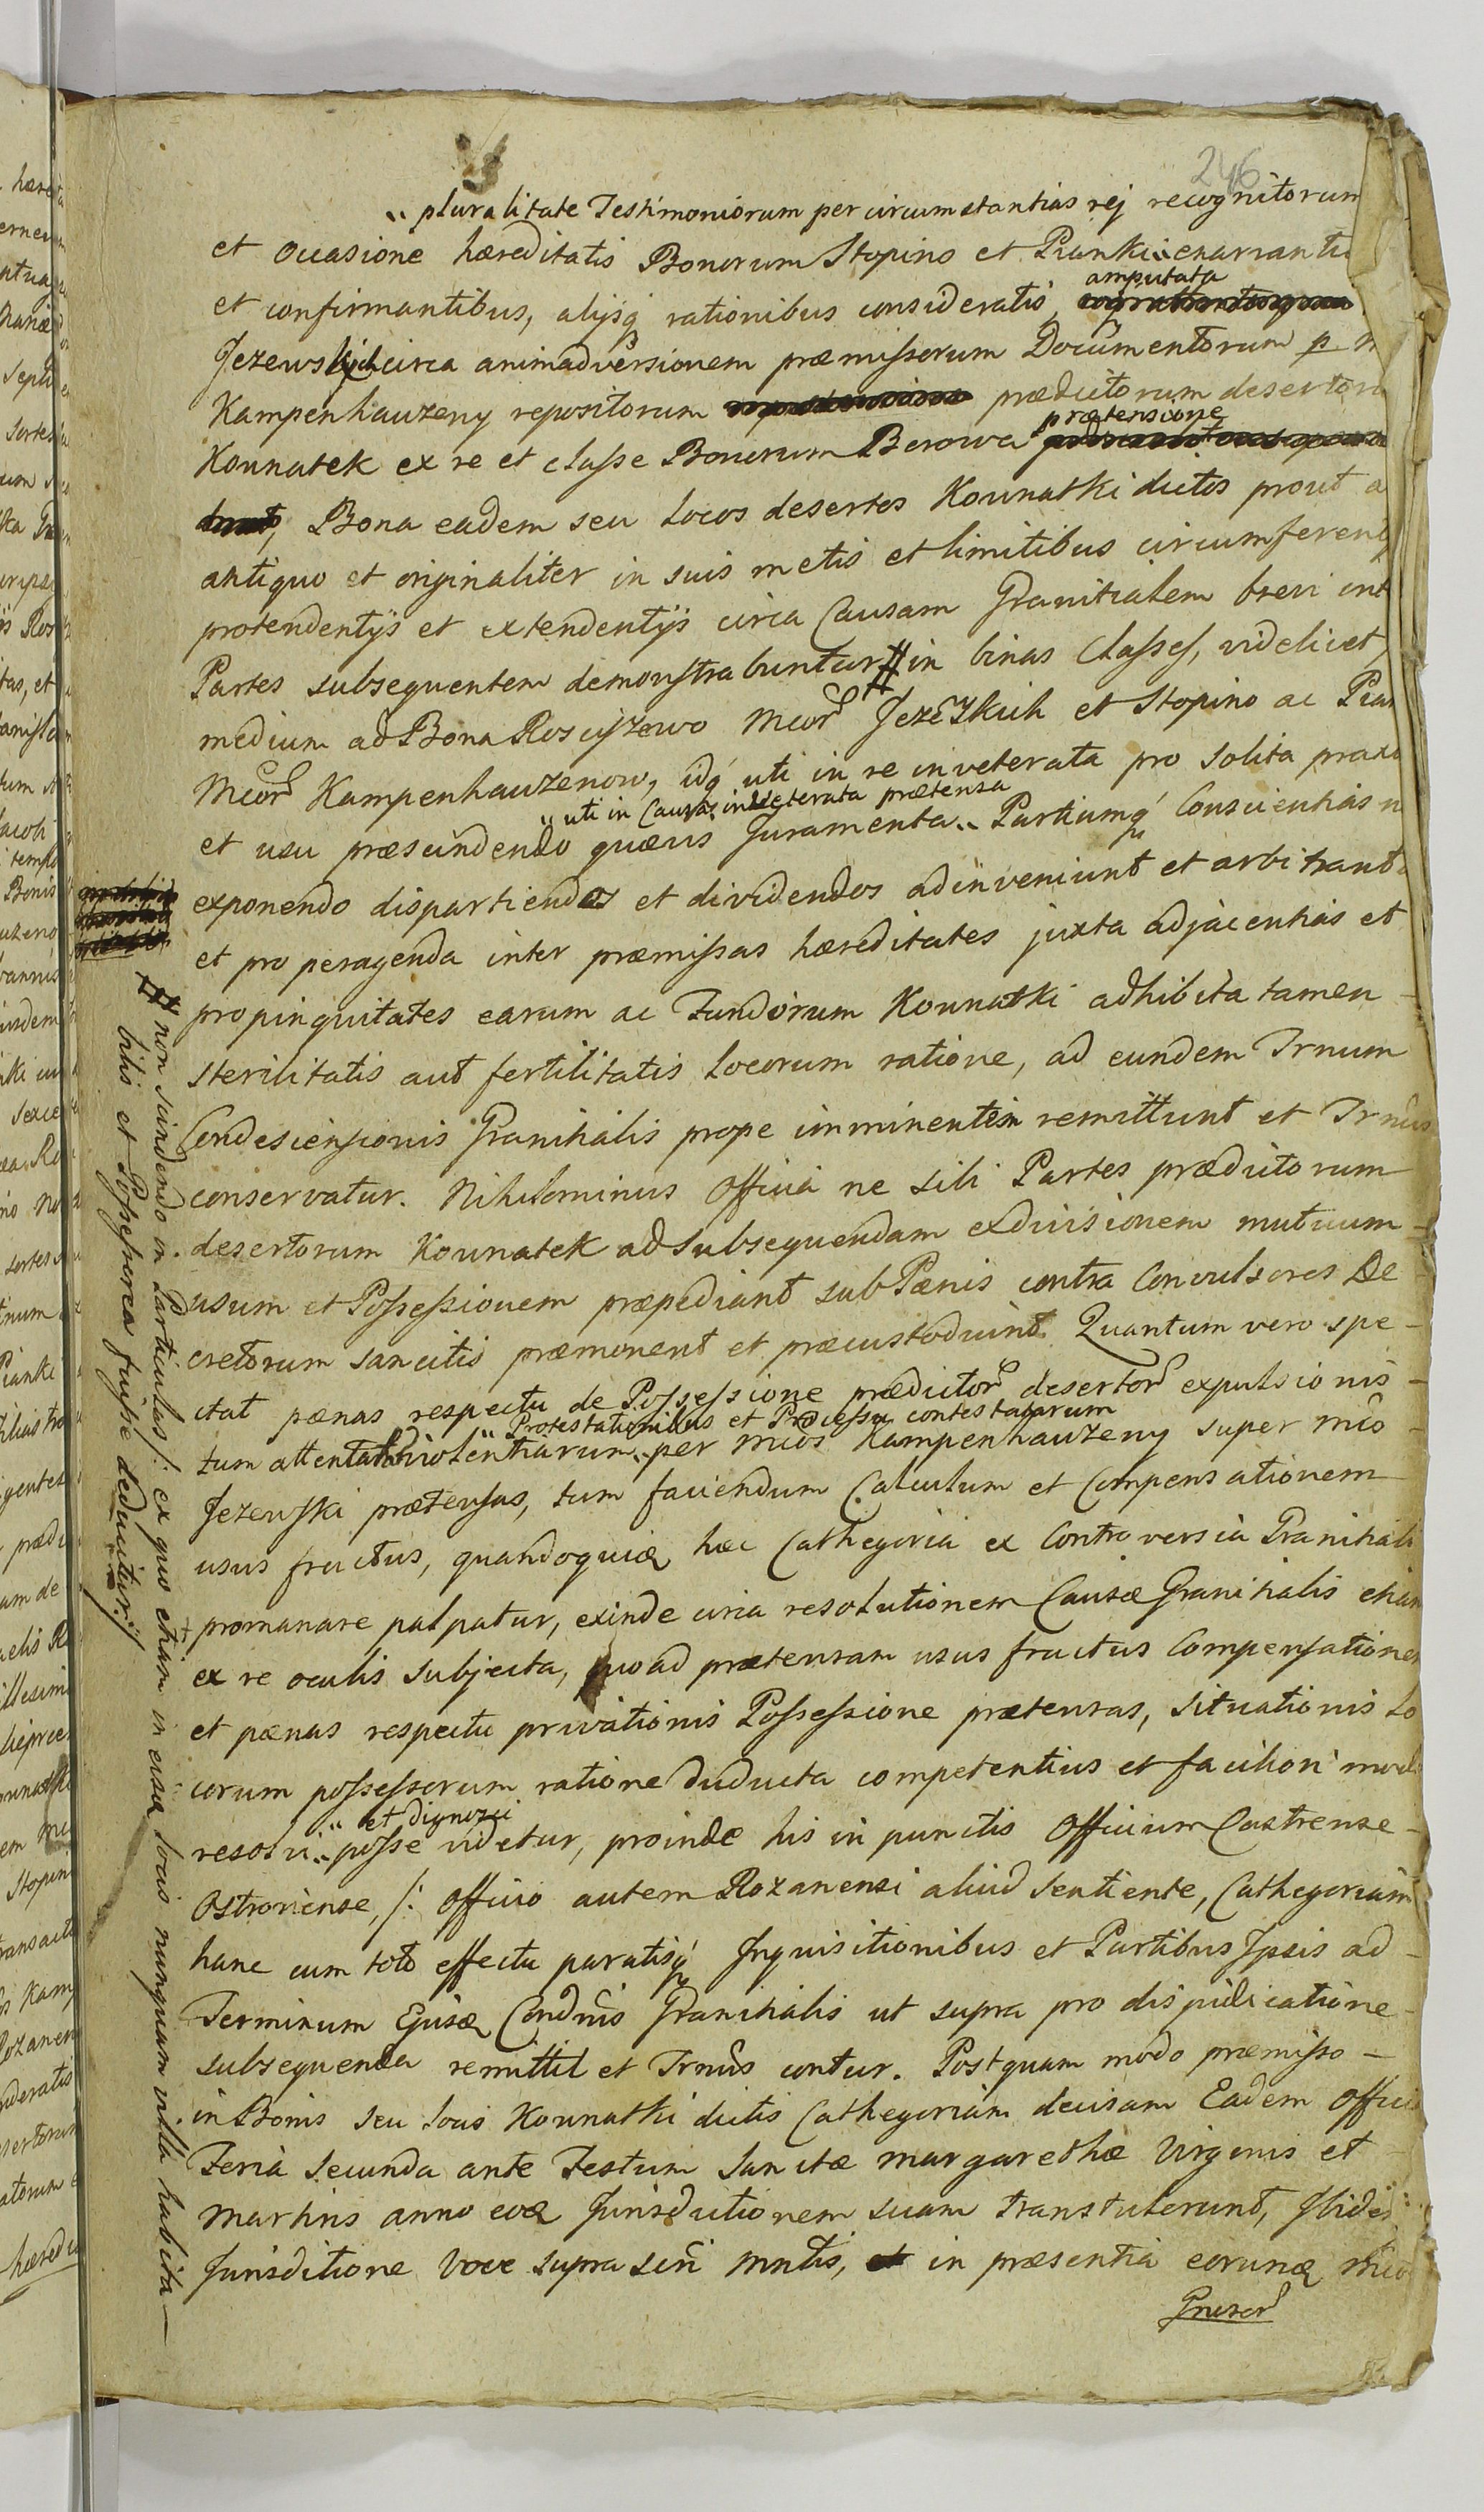 246
„ pluralitate Testimoniorum per circumstantias rej recognitorum
et occasione hæreditatis Bonorum Stopino et Pianki „ enarrantu
et confirmantibus, alijsq rationibus consideratis, amputata
Jezewskich circa animadversionem præmissorum Documentorum p
Kampenhauzeny repositorum prædictorum desertoru
Kounatek ex re et classe Bonorum Berowa prætensione
Bona eadem seu Locos desertos Kounatki dictos prout a
antiquo et originaliter in suis metis et limitibus circumferent
protendentijs et extendentijs circa Causam Granitialem brevi int
Partes subsequentem demonstrabuntur # in binas Classes, videlicet,
medium ad Bona Roscijzewo Mcor Jezewskich et Stopino ac Pian
Mcor Kampenhauzenow, idq uti in re inveterata pro solita praxi
„ uti in Causa inveterata prætensa
et usu præscindendo quævis Juramenta „ Partiumq Conscientias n
exponendo dispartiendos et dividendos adinveniunt et arbitrant
et pro peragenda inter præmissas hæreditates juxta adjacentias et
propinquitates earum ac Fundorum Kounatki adhibita tamen
sterilitatis aut fertilitatis Locorum ratione, ad eundem Trnum
Condescensionis Granitialis prope imminentem remittunt et Trnus
conservatur. Nihilominus Officia ne sibi Partes prædictorum
desertorum Kounatek ad subsequendam exdivisionem mutuum
usum et Possessionem præpediant sub Pænis contra Convulsores De
cretorum sancitis præmonent et præcustodiunt. Quantum vero spe
ctat pænas respectu de Possessione prædictor desertor expulsionis
„ Protestationibus et Processu contestatarum
tum attentat violentiarum „ per Mcos Kampenhauzeny super Mcos
Jezewski prætensas, tum faciendum Calculum et Compensationem
usus fructus, quandoquidem hæc Cathegoria ex Controversia Granitiali
promanare palpatur, exinde circa resolutionem Causæ Granitialis etiam
ex re oculis subjecta, quoad prætensam usus fructus Compensationem
et pænas respectu privationis Possessione prætensas, situationis Lo
corum possessorum ratione deducta competentius et faciliori modo
„ et dignosci
resolvi „ posse videtur, proinde his in punctis Officium Castrense
Ostroviense, /: Officio autem Rozanensi aliud sentiente, Cathegoriam
hanc cum toto effectu paratisq Inquisitionibus et Partibus Ipsis ad
Terminum Ejusd Condnis Granitialis ut supra pro dijudicatione
subsequenda remittit et Trnus contur. Postquam modo præmisso
in Bonis seu Locis Kounatki dictis Cathegoriam decisam Eadem Officia
Feria Secunda ante Festum Sanctæ Margarethæ Virginis et
Martiris anno eod Jurisdictionem suam transtulerunt, Ibidem
Jurisditione voce supra scri Mntis, in præsentia eorund Mco
Gnrosor
# non scindendo in Particulas /: ex quo etiam in eisd locis nunquam villa habita
bilis et Possessorea fuisse deducitur :/